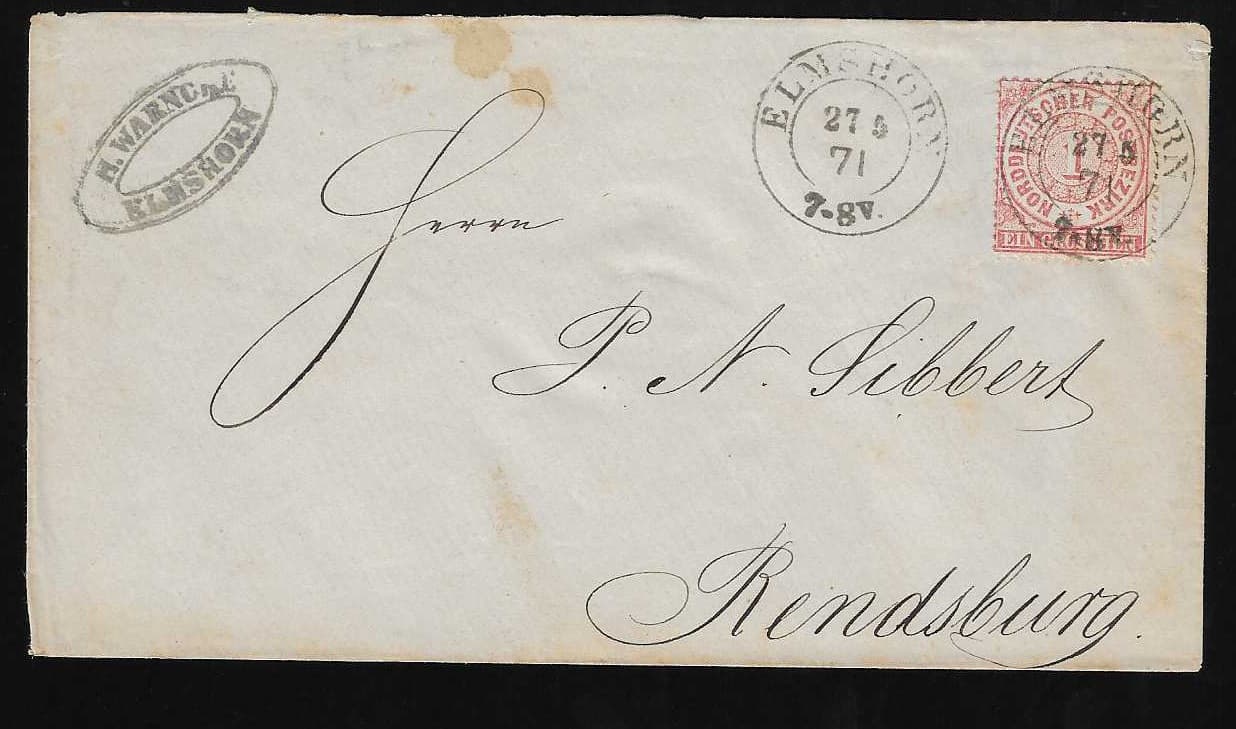 H. WARNCKE
ELMSHORN
ELMSHORN
27 5
71
7-8V.
NORDDEUTSCHER POSTBEZIRK
1
EIN GROSCHEN
ELMSHORN
27 5
71
7-8V.
Herrn
P. N. Sibbert
Rendsburg.